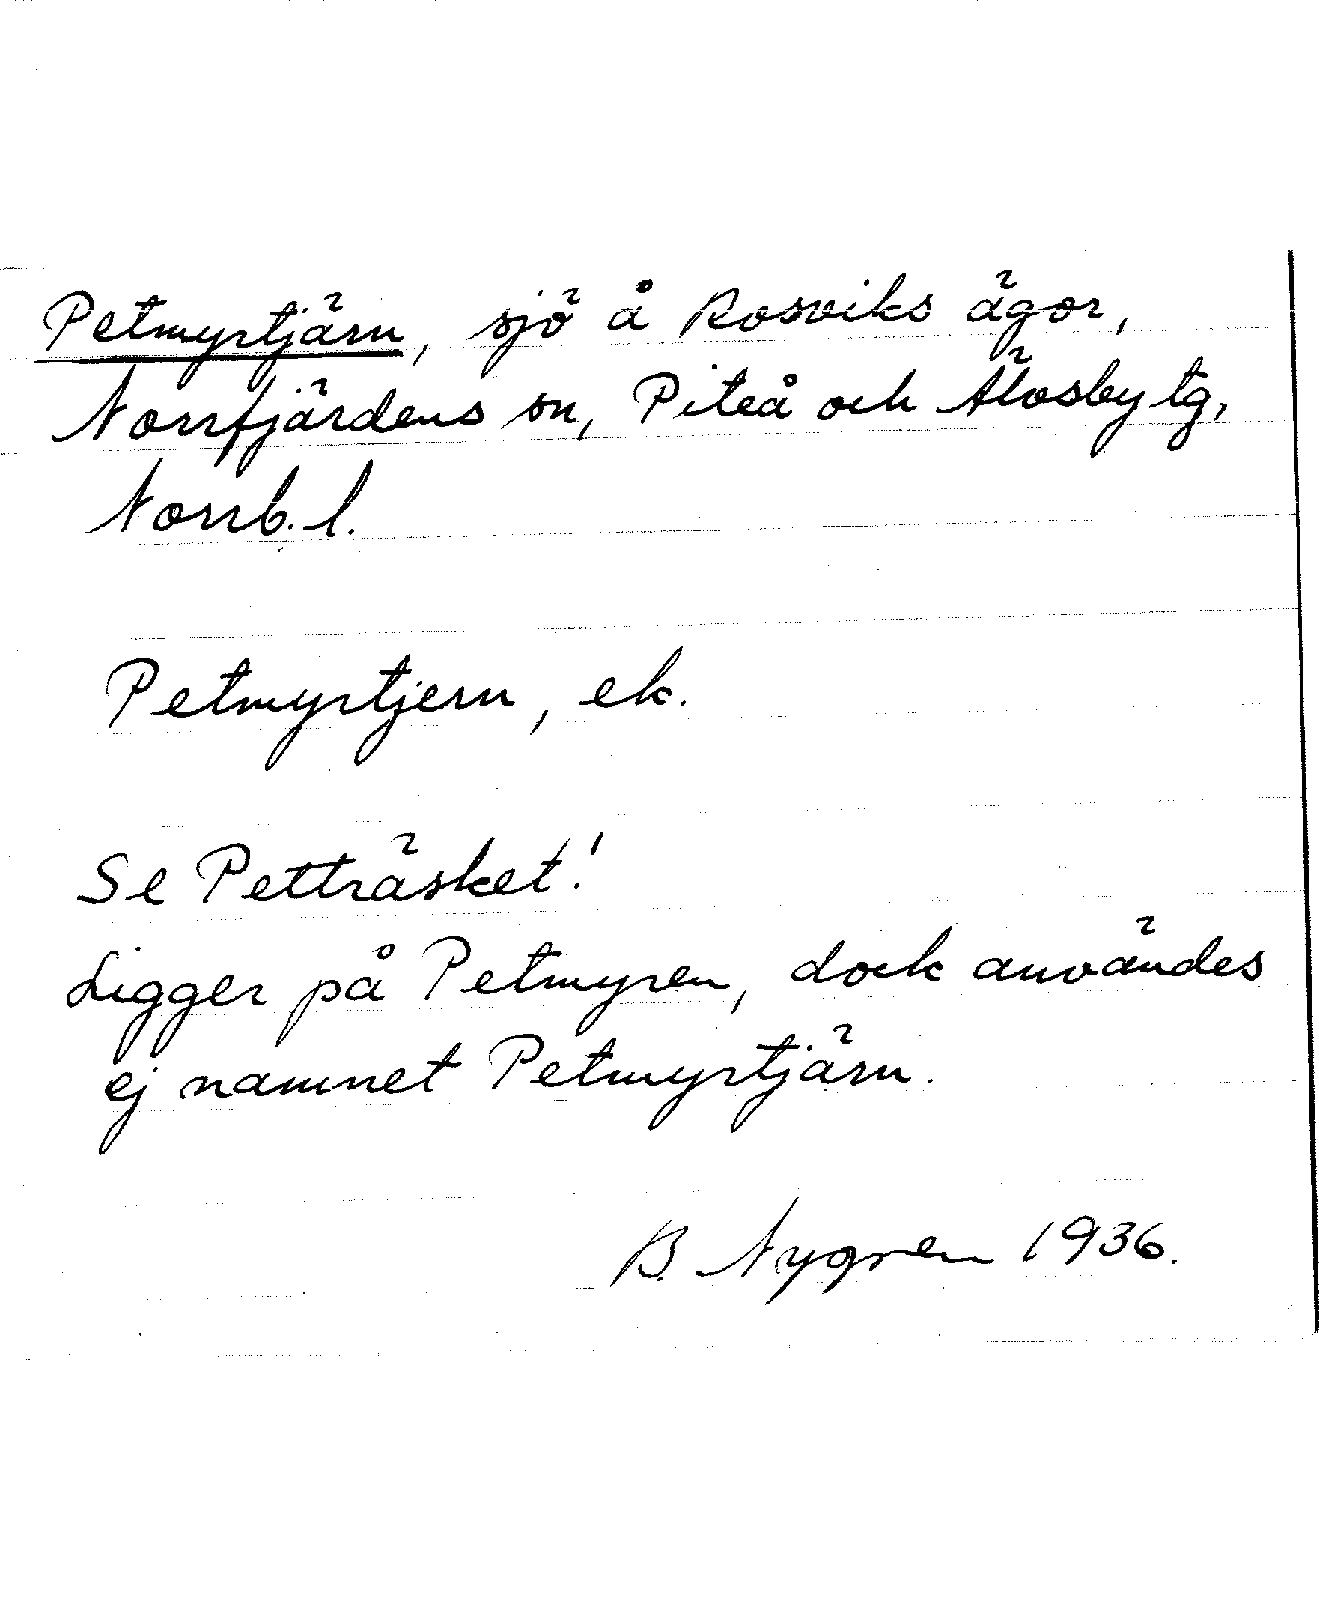 Petmyrtjärn, sjö å Rosviks ägor,
Norrfjärdens sn, Piteå och Älvsby tg,
Norrb. l.
Petmyrtjern, ek.
Se Petträsket!
Ligger på Petmyren, dock användes
ej namnet Petmyrtjärn.
B. Nygren 1936.